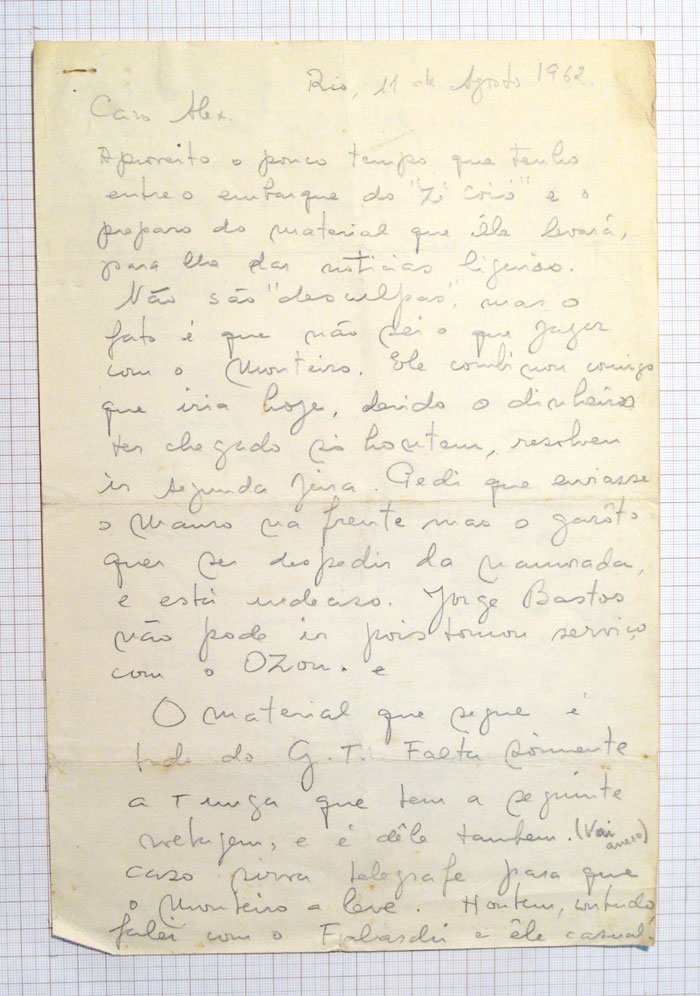 Rio, 11 de Agosto 1962.
Caro Alex.
Aproveito o pouco tempo que tenho
entre o embarque do "Zé
preparo do material que êle levará,
para lhe dar noticias ligeiras.
Não são "desculpas", mas o
fato é que não sei o que fazer
com o Monteiro. Ele combinou comigo
que iria hoje, devido o dinheiro
ter chegado só hontem, resolveu
ir segunda feira. Pedi que enviasse
o Mauro na frente mas o garôto
quer se despedir da namorada,
e está indeciso. Jorge Bastos
não pode ir pois tomou serviço
com o OZon. e
O material que segue é
tudo do G.T. Falta sòmente
a Tunga que tem a seguinte
metragem; e é dêle tambem. (Vai
anexo)
caso sirva telegrafe para que
o Monteiro a leve. Hontem, contudo
falei com o e êle casual